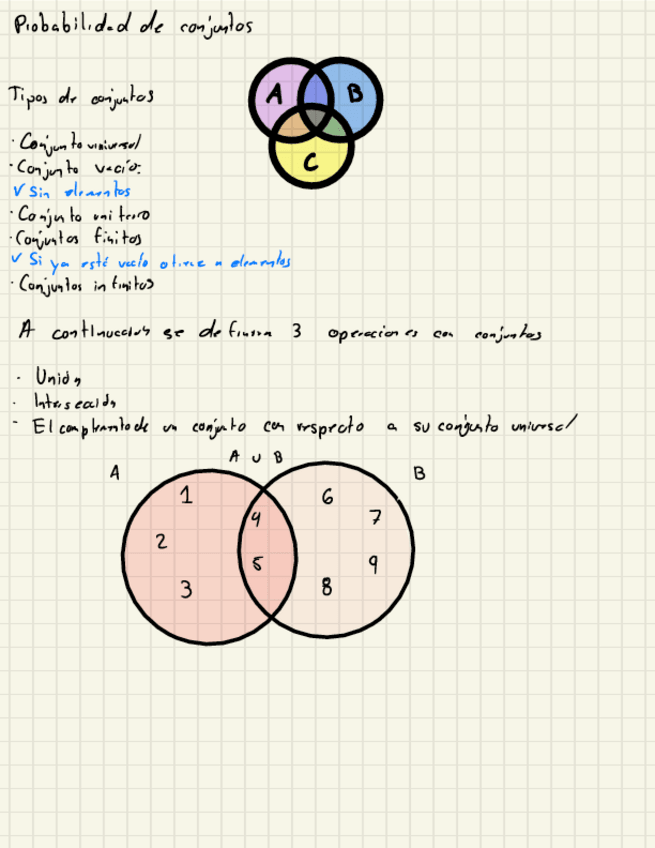 Probabilidad de conjuntos
A B
Tipos de conjuntos
C
· Conjunto universal
· Conjunto vacío:
✓ Sin elementos
· Conjunto unitario
· Conjuntos finitos
✓ Si ya está vacío o tiene n elementos
· Conjuntos infinitos
A continuación se definen 3 operaciones con conjuntos
· Unión
· Intersección
- El complemento de un conjunto con respecto a su conjunto universal
A A ∪ B B
1 6
4 7
2
5 9
3 8